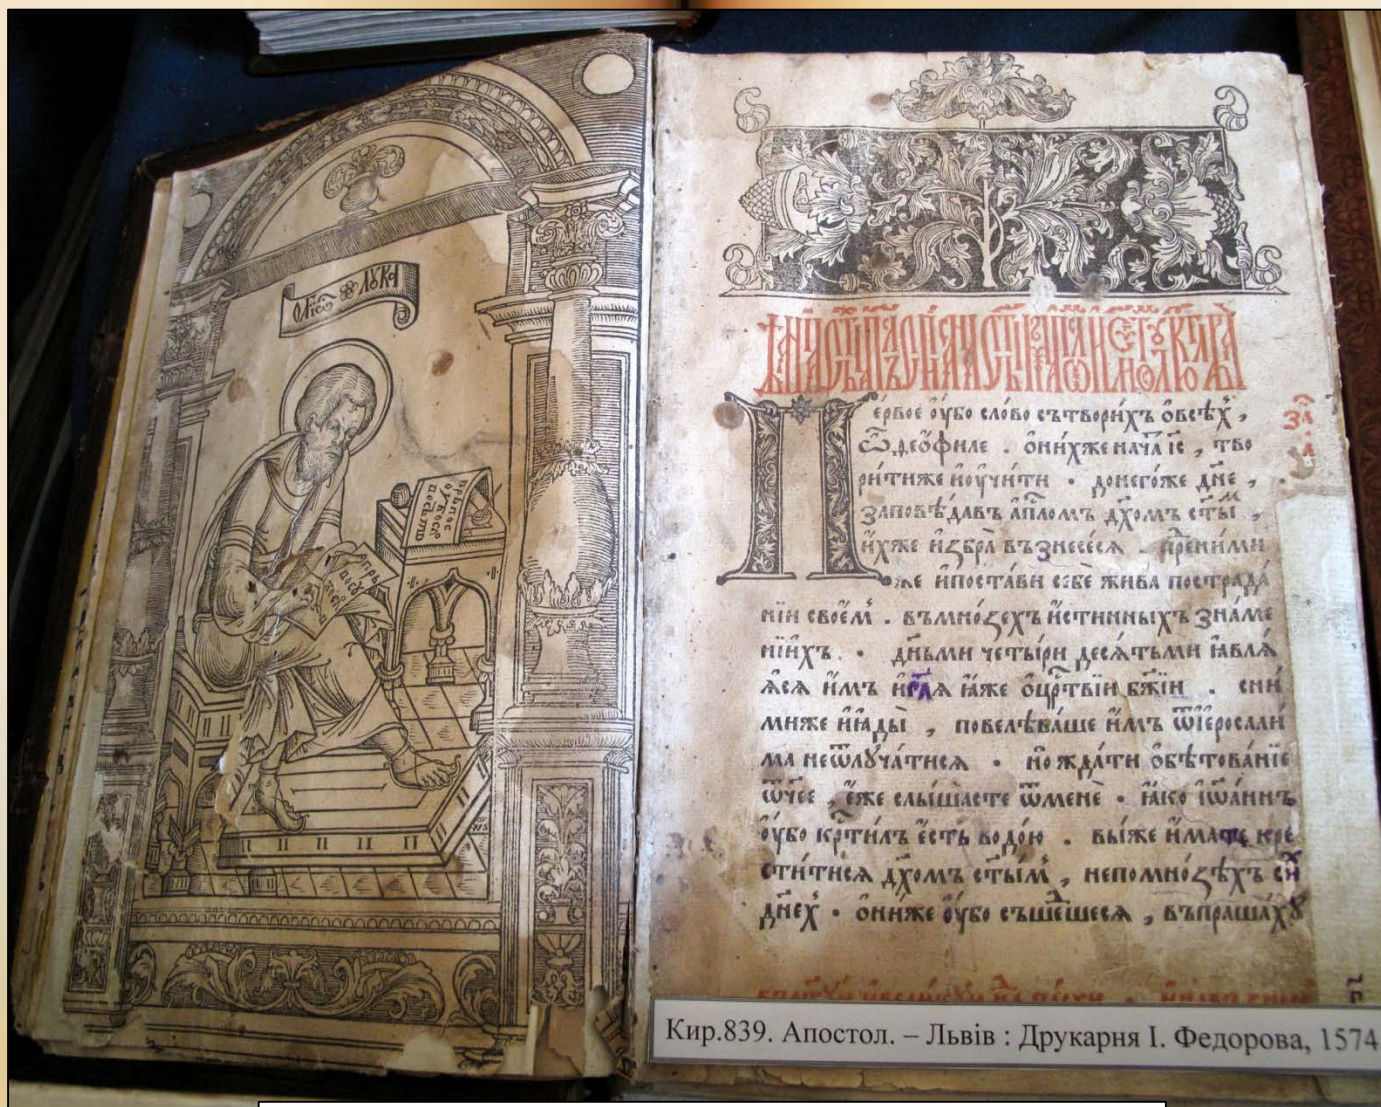 ЛꙊКА
Первое ѹ҆бо сло́во сътвори́хъ ѻ҆всѣ́х҆,
ѽ,ѳео́филе . ѻ҆ни́хже нача́ л і҃с , тво
ри́тиже и҆ѹчи́ти · донего́же дн҃е ,
заповѣ́давъ а҆пⷭ҇ломъ дх҃ом ст҃ыⷨ ,
и҆́хже и҆збра̀ възнесе́сѧ . пре́ними
же и҆поста́ви себѐ жи́ва пострада́
нїи свое́м . въмно́зехъ и҆́стинныхъ зна́ме
нїихъ . дн҃ьми четы́ри десѧ́тьми ꙗ҆влѧ́
ѧсѧ и҆̀мъ и҆гл҃ѧ ꙗ҆́же ѻ҆црⷭ҇твїи бж҃їи . сни́
миже и҆ꙗды̀ , повелѣва́ше и҆̀мъ ѿіеросали́
ма неѿлꙋча́тисѧ · но жда́ти ѻ҆бѣтова́нїе
ѻ҆́ч҃ее , е҆́же слы́шасте ѿменѐ · ꙗ҆́ко і҆ѡа́ннъ
ѹ҆́бо крⷭ҇ти́лъ є҆́сть водо́ю . вы́же и҆́мате кре
сти́тисѧ дх҃омъ ст҃ы́м , непомно́зѣхъ си́ⷯ
дне́х҆ · ѻ҆ни́же ѹ҆́бо съше́дшесѧ , въпраша́хꙋ
Кир.839. Апостол. – Львів : Друкарня І. Федорова, 1574